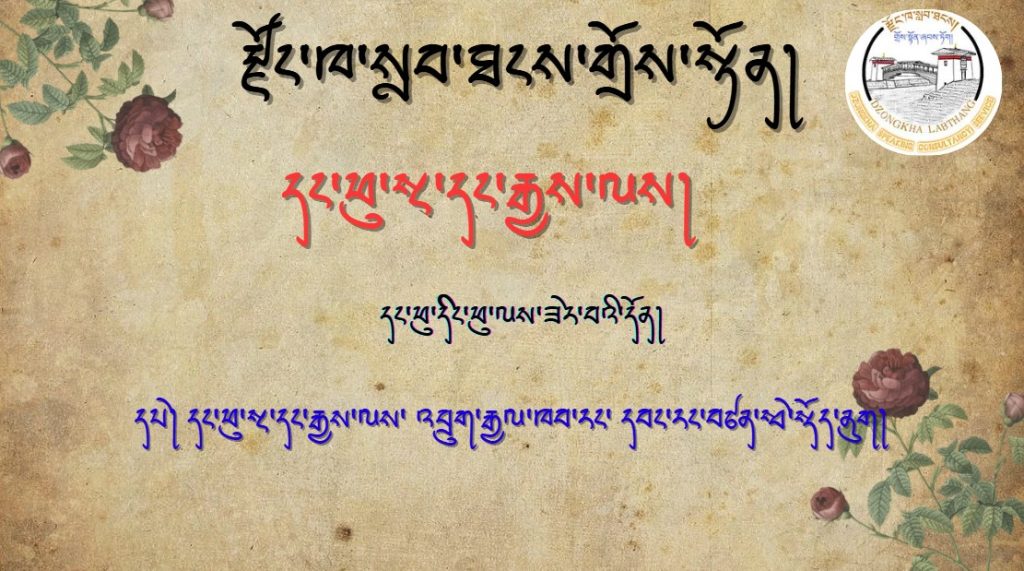 རྫོང་ཁ་སླབ་ཐངས་གྲོས་སྟོན།
རྫོང་ཁ་སླབ་ཐངས།
གྲོས་སྟོན་ཞབས་ཏོག།
DZONGKHA LABTHANG
དང་ཕུ་སྔ་དང་རྒྱས་ལས།
དང་ཕུ་དིང་ཕུ་ལས་ཟེར་བའི་དོན།
དཔེ། དང་ཕུ་སྔ་དང་རྒྱས་ལས་ འབྲུག་རྒྱལ་ཁབ་རང་ དབང་རང་བཙན་སྦེ་སྡོད་ནུག།